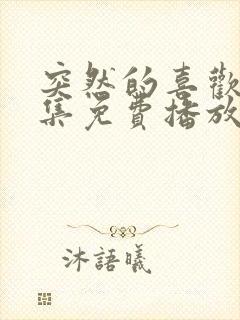 突然的喜歡
集免費播放
沐語曦